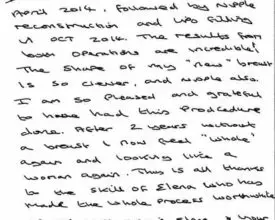 April 2014, followed by nipple
reconstruction and lipo filling
in OCT 2014. The results from
both operations are incredible!
The shape of my "new" breast
is so clever, and nipple also.
I am so pleased and grateful
to have had this procedure
done. After 2 years without
a breast I now feel "whole"
again and looking like a
woman again. This is all thanks
to the skill of Elena who has
made the whole process worthwhile